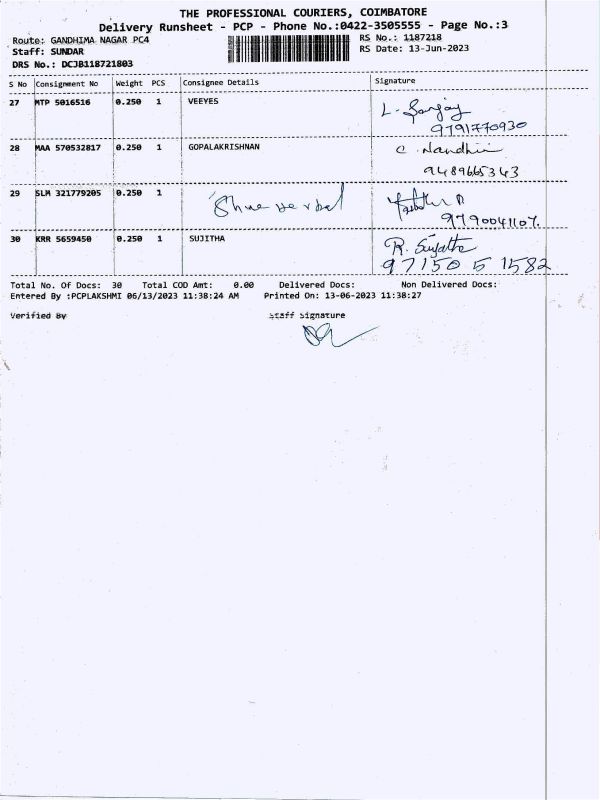 THE PROFESSIONAL COURIERS, COIMBATORE
Delivery Runsheet - PCP - Phone No.:0422-3505555 - Page No.:3
Route: GANDHIMA NAGAR PC4 RS No.: 1187218
Staff: SUNDAR RS Date: 13-Jun-2023
DRS No.: DCJB118721803
S No Consignment No Weight PCS Consignee Details Signature
27 MTP 5016516 0.250 1 VEEYES L. Sanjay
9791770930
28 MAA 570532817 0.250 1 GOPALAKRISHNAN C. Nandhini
9489665343
29 SLM 321779205 0.250 1
9790041107.
30 KRR 5659450 0.250 1 SUJITHA R. Sujatha
97150 5 1582
Total No. Of Docs: 30 Total COD Amt: 0.00 Delivered Docs: Non Delivered Docs:
Entered By :PCPLAKSHMI 06/13/2023 11:38:24 AM Printed On: 13-06-2023 11:38:27
Verified By Staff Signature